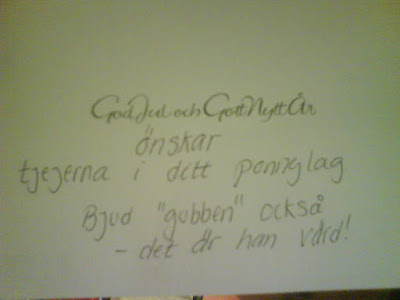 God Jul och Gott Nytt År
önskar
tjejerna i ditt poninglag
Bjud "gubben" också
- det är han värd!